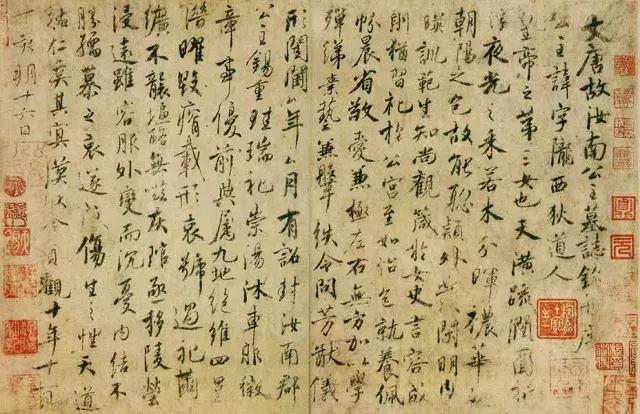 大唐故汝南公主墓誌銘并序
公主諱字隴西狄道人
皇帝之第三女也天潢疏潤圓折
浮夜光之采若木分暉穠華
朝陽之色故能聰穎外發閑明內
暎訓範生知尚觀箴於女史言容成
則猶習礼於公宮至如怡色就養佩
帉晨省敬愛兼極左右無方加以學
殫綈素藝兼鞶紩令問芳猷儀
形閨閫厶年厶月有詔封汝南郡
公主錫重珪瑞礼崇湯沐車服徽
章事優前典屬九地絕維四星
潛曜毀瘠載形哀號過礼繭
纊不襲塩酪無嗞灰琯亟移陵塋
浸遠雖容服外變而沉憂內結不
勝孺慕之哀遂成傷生之性天道
祐仁奚其冥漠以今貞觀十年十一
丁亥朔十六日